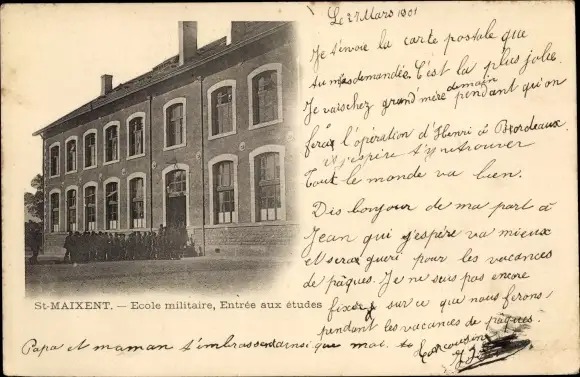 Le 27 Mars 1901
Je t'envoie la carte postale que
tu m'as demandée. C'est la plus jolie.
Je vais chez grand'mère demain pendant qu'on
fera l'opération d'Henri à Bordeaux.
j'espère t'y retrouver
Tout le monde va bien.
Dis bonjour de ma part à
Jean qui j'espère va mieux
et sera guéri pour les vacances
de pâques. Je ne suis pas encore
fixée sur ce que nous ferons
pendant les vacances de pâques.
St-MAIXENT. — Ecole militaire, Entrée aux études
Papa et maman t'embrassent ainsi que moi. ta
cousine